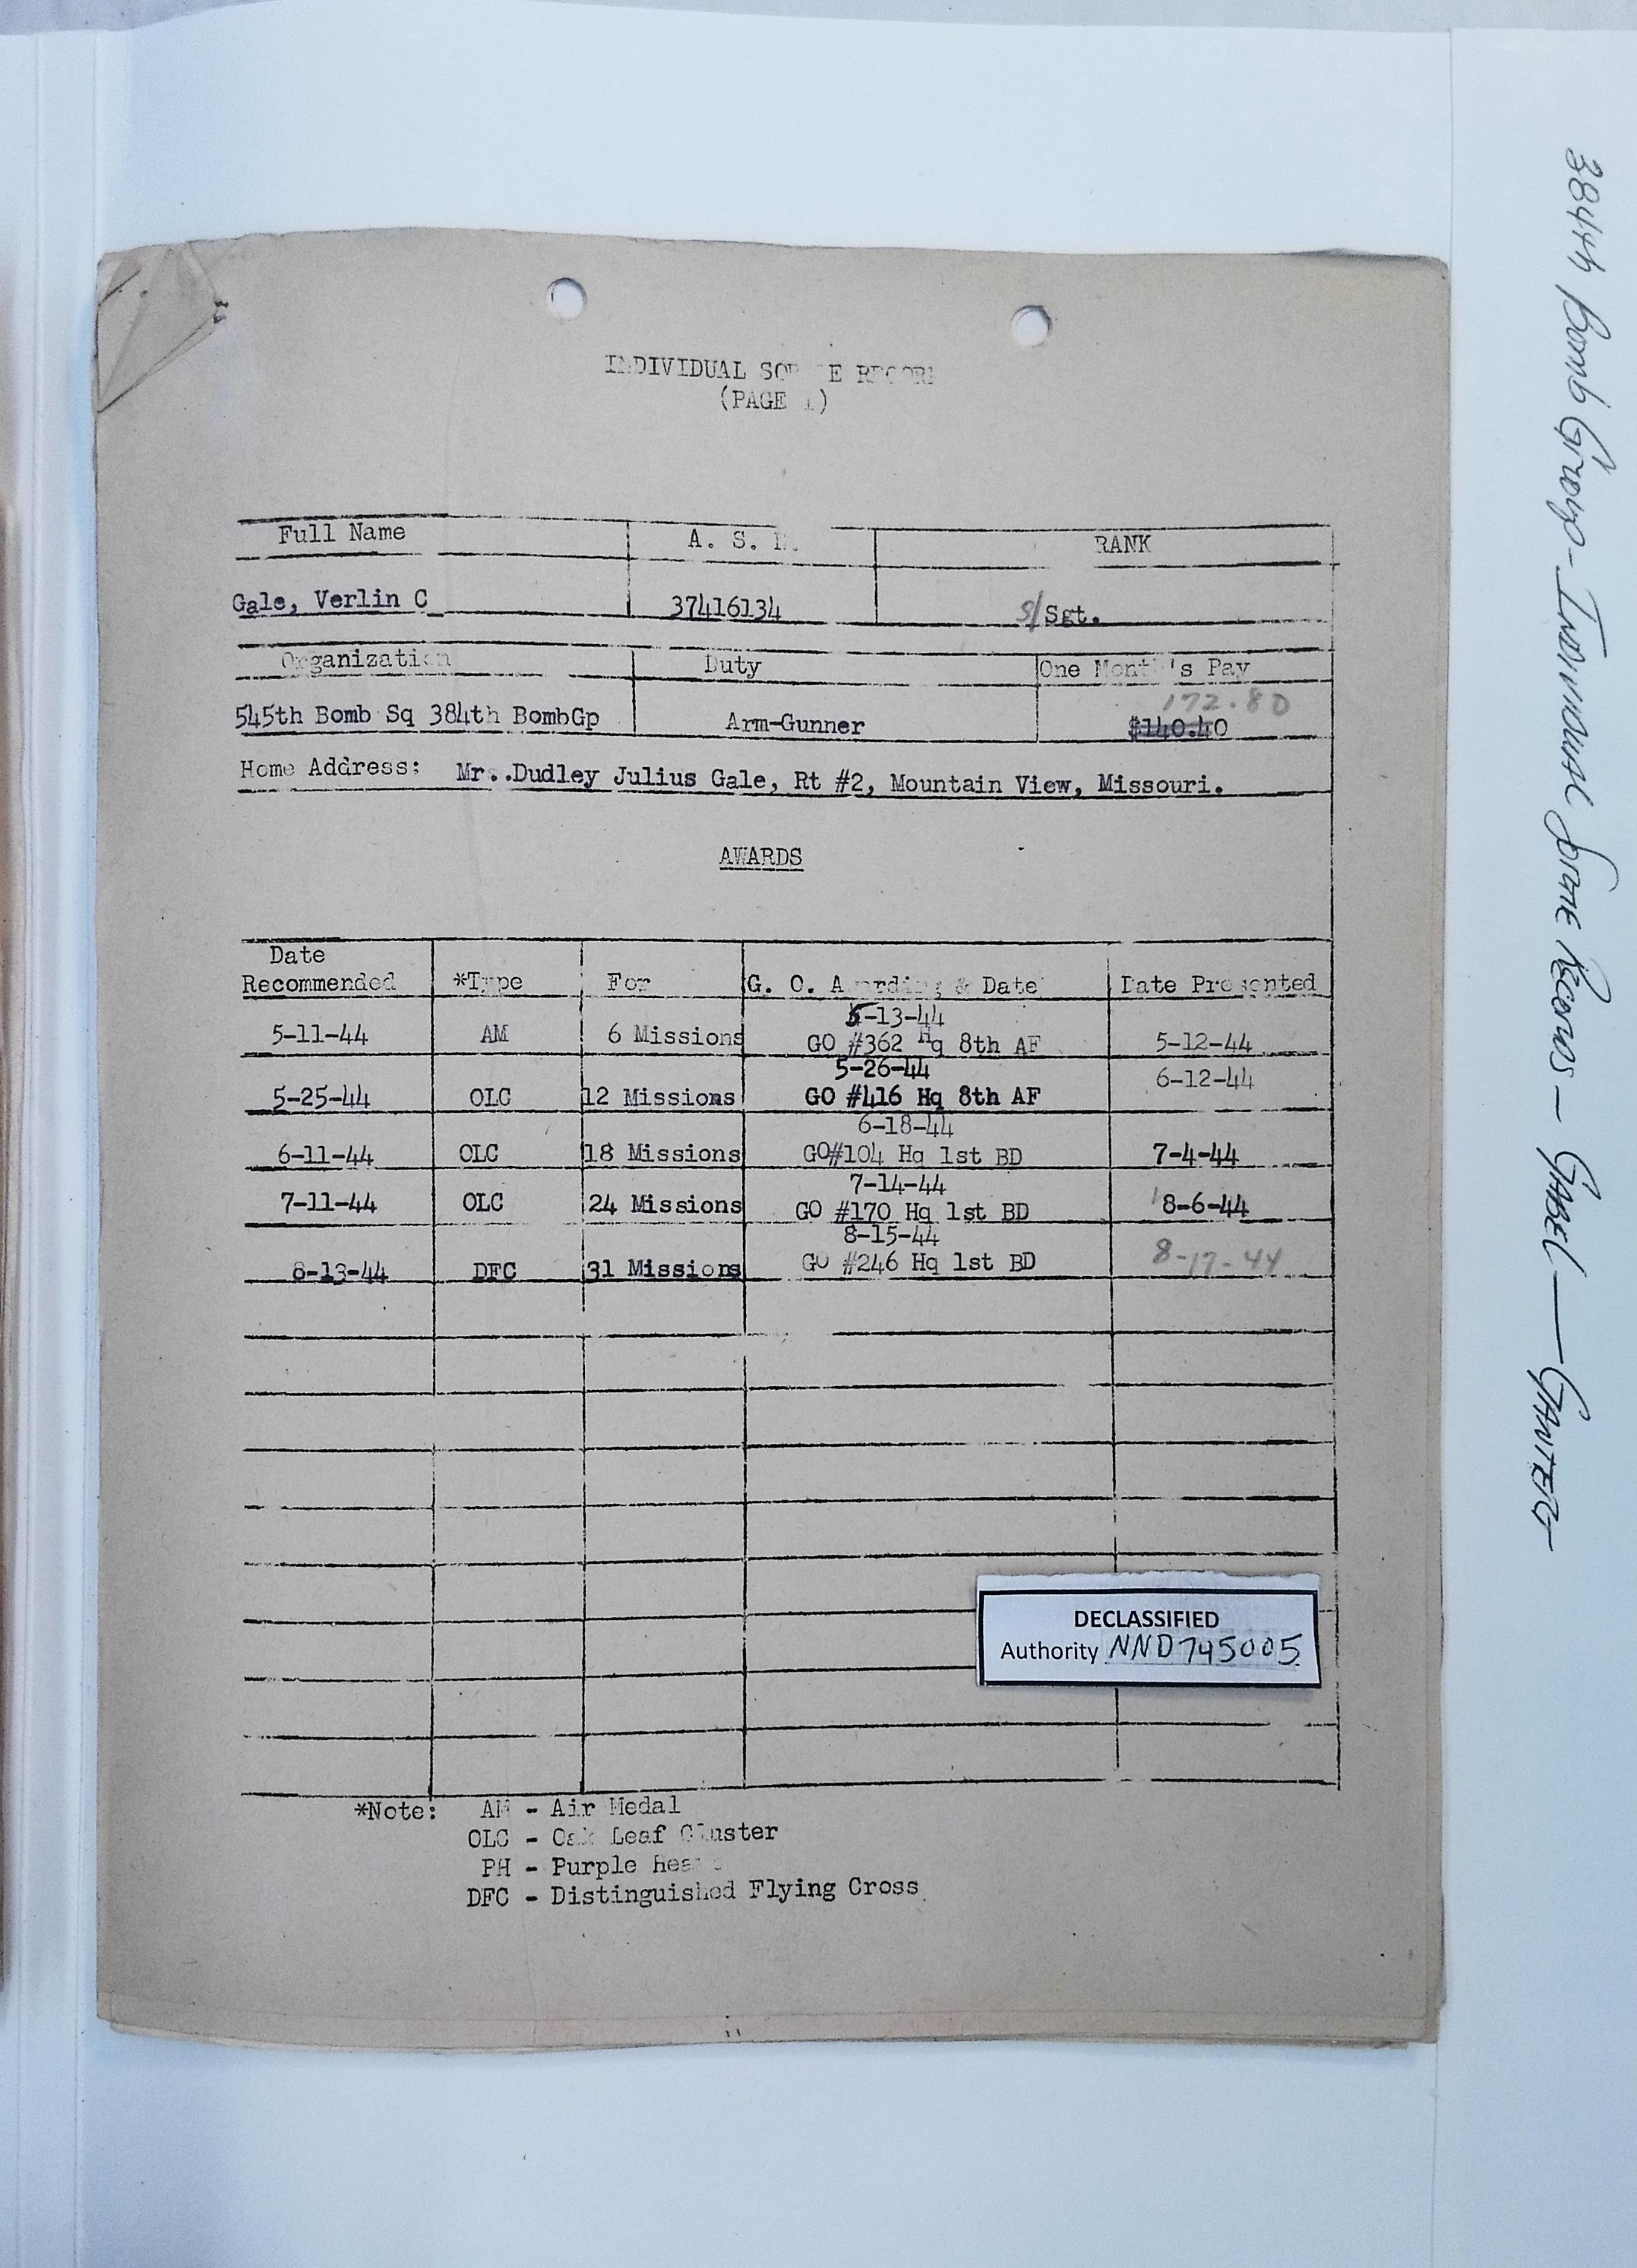 INDIVIDUAL SORTIE RECORD
(PAGE 1)
Full Name A. S. N. RANK
Gale, Verlin C 37416134 S/Sgt.
Organization Duty One Month's Pay
172.80
545th Bomb Sq 384th BombGp Arm-Gunner $140.40
Home Address: Mr..Dudley Julius Gale, Rt #2, Mountain View, Missouri.
AWARDS
Date
Recommended *Type For G. O. Awarding & Date Date Presented
5-13-44
5-11-44 AM 6 Missions GO #362 Hq 8th AF 5-12-44
5-26-44 6-12-44
5-25-44 OLC 12 Missions GO #416 Hq 8th AF
6-18-44
6-11-44 OLC 18 Missions GO#104 Hq 1st BD 7-4-44
7-14-44
7-11-44 OLC 24 Missions GO #170 Hq 1st BD 8-6-44
8-15-44
8-13-44 DFC 31 Missions GO #246 Hq 1st BD 8-17-44
DECLASSIFIED
Authority NND745005
*Note: AM - Air Medal
OLC - Oak Leaf Cluster
PH - Purple Heart
DFC - Distinguished Flying Cross
384th Bomb Group - Individual Sortie Records - Gabel — Ganter